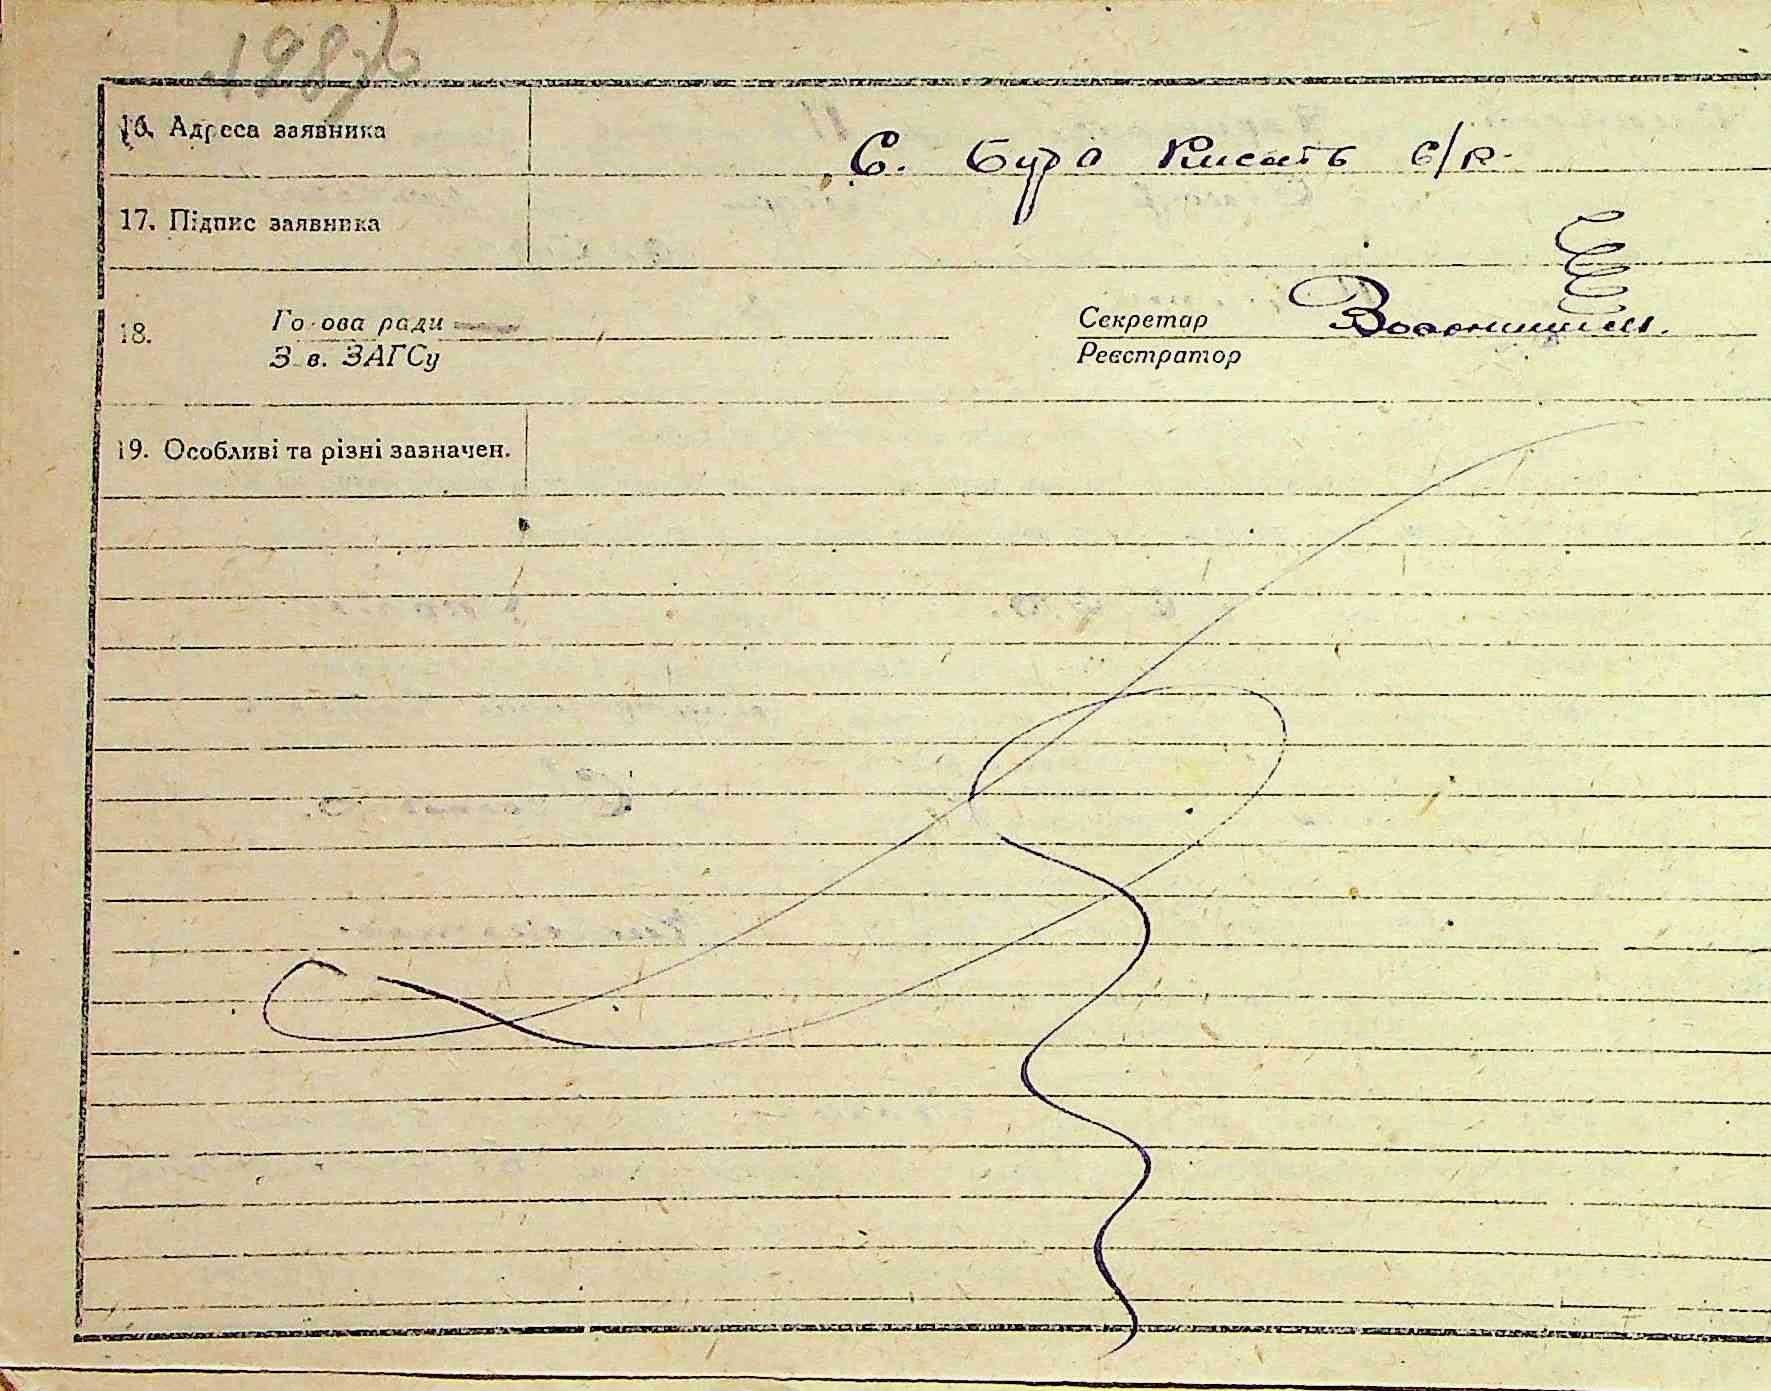 198
16. Адреса заявника С. Бура Кисать с/к.
17. Підпис заявника
18. Голова ради
Зав. ЗАГСу
Секретар
Реєстратор
19. Особливі та різні зазначен.